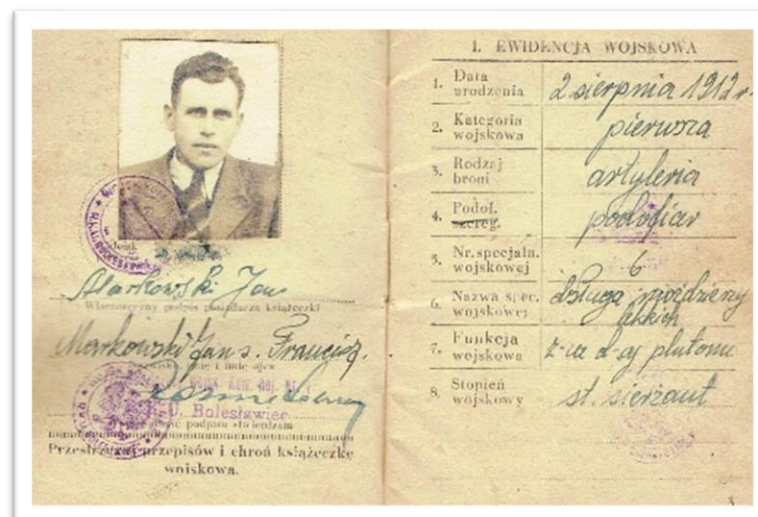 Markowski Jan
Własnoręczny podpis posiadacza książeczki
Markowski Jan s. Francisz.
imię i imię ojca
R.K.U. Bolesławiec
podpisu stwierdzam
Przestrzegaj przepisów i chroń książeczkę
wojskową.
I. EWIDENCJA WOJSKOWA
1. Data urodzenia 2 sierpnia 1912 r.
2. Kategoria wojskowa pierwsza
3. Rodzaj broni artyleria
4. Podof. szereg. podoficer
5. Nr. specjaln. wojskowej 6
6. Nazwa spec. wojskowej obsługa moździerzy
lekkich
7. Funkcja wojskowa z-ca d-cy plutonu
8. Stopień wojskowy st. sierżant
3